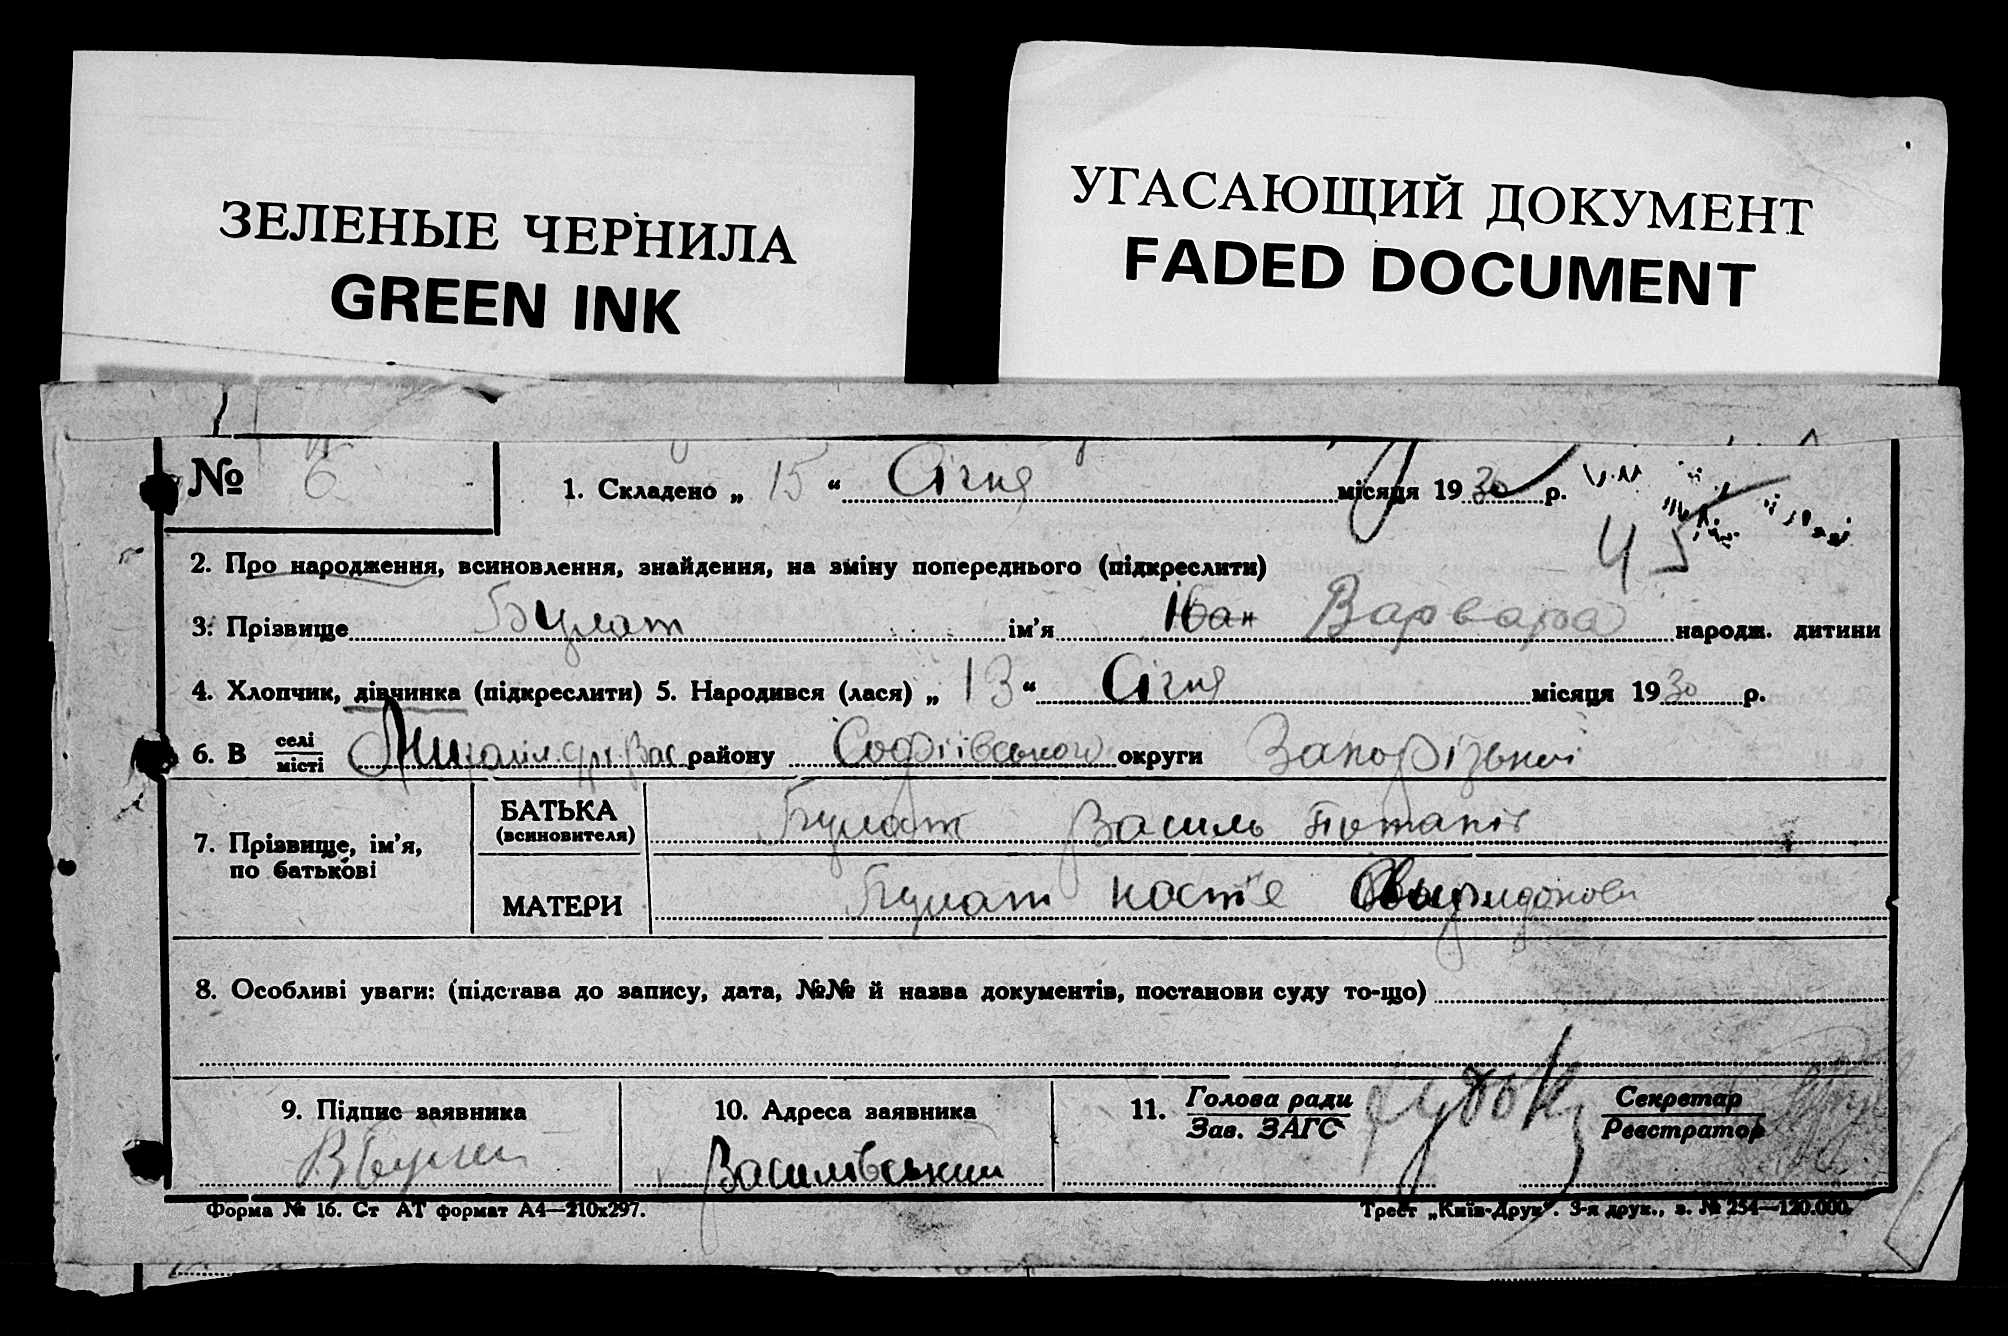 ЗЕЛЕНЫЕ ЧЕРНИЛА
GREEN INK
УГАСАЮЩИЙ ДОКУМЕНТ
FADED DOCUMENT
№ 6
1. Складено „ 15 “ Січня місяця 1930 р.
45
2. Про народження, всиновлення, знайдення, на зміну попереднього (підкреслити)
3. Прізвище Булат ім’я Іван Варвара народж. дитини
4. Хлопчик, дівчинка (підкреслити) 5. Народився (лася) „ 13 “ Січня місяця 1930 р.
6. В селі місті району Софіївського округи Запорізької
7. Прізвище, ім’я, по батькові
БАТЬКА (всиновителя) Булат Василь Потапів
МАТЕРИ Булат Настʼя
8. Особливі уваги: (підстава до запису, дата, №№ й назва документів, постанови суду то-що)
9. Підпис заявника
10. Адреса заявника
Василівський
11. Голова ради Зав. ЗАГС
Секретар Реєстратор
Форма № 16. Ст АТ формат А4—210х297.
Трест „Київ-Друк“. 3-я друк., з. № 254—120.000.